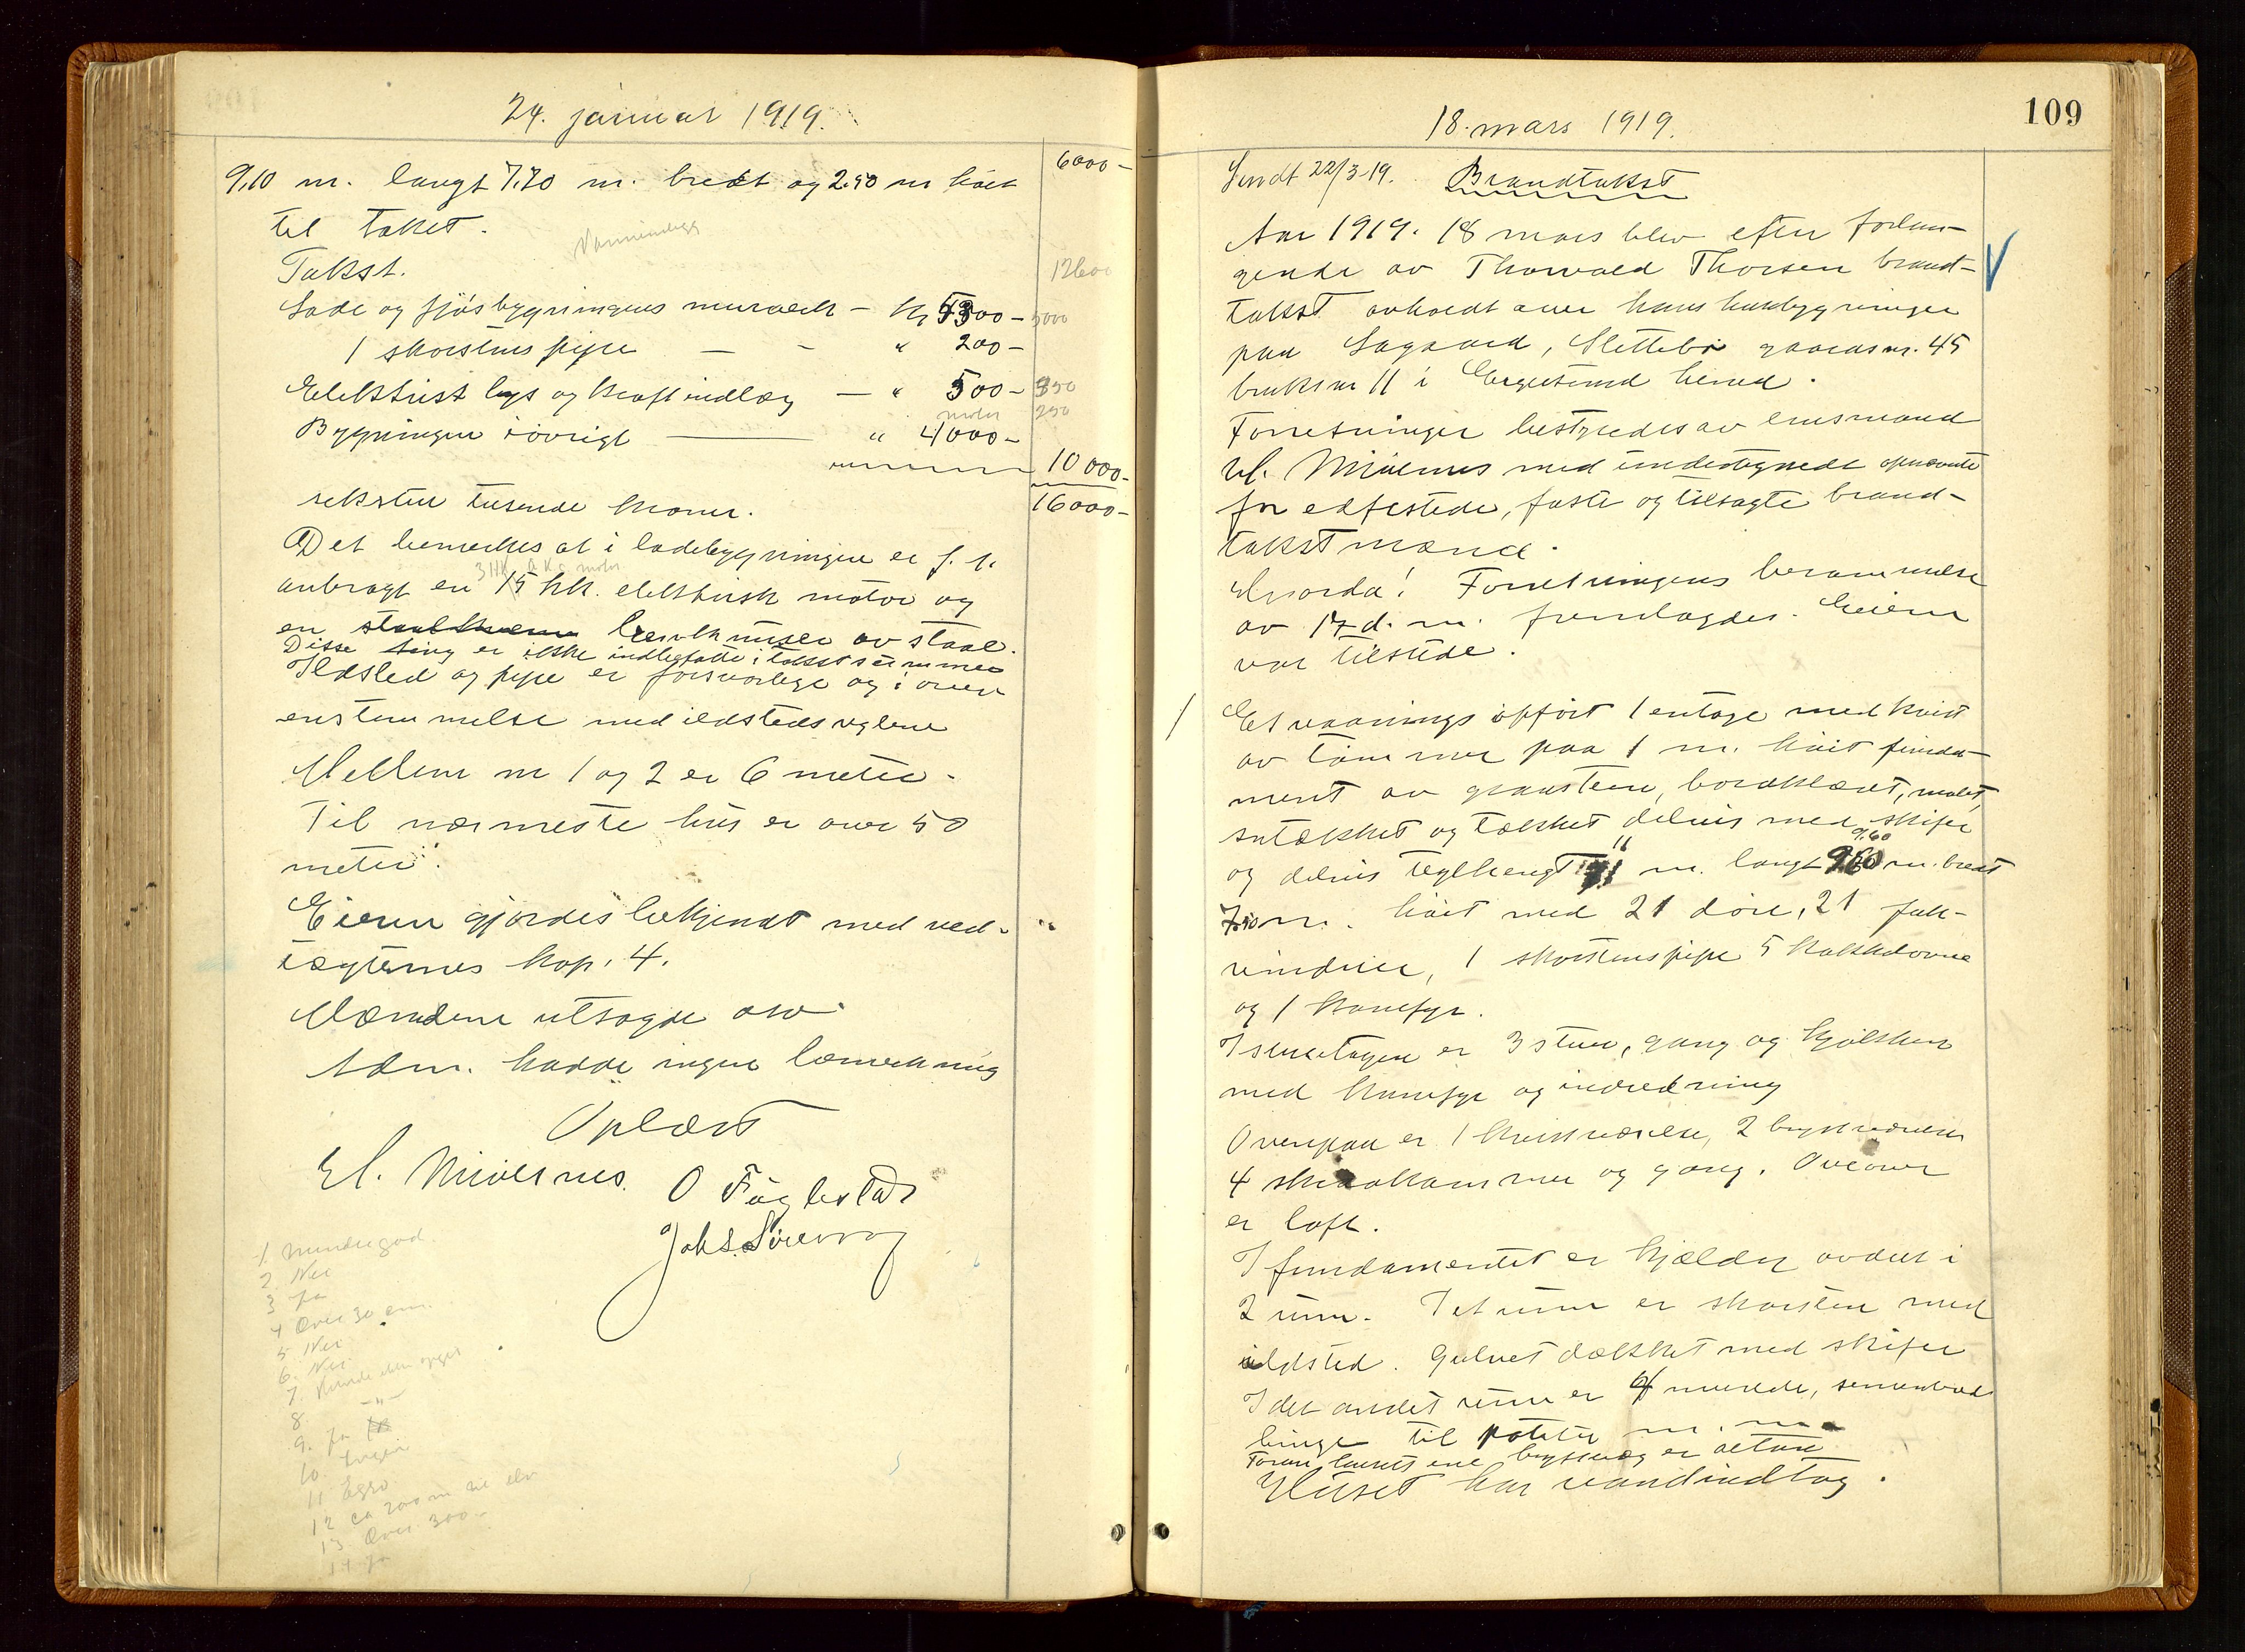 24. januar 1919.
6000-
9,10 m. langt 7,70 m. bredt og 2.90 m høit
til taket.
Vanninnlegg
Takst.
12600
Lade og fjøsbygningens murverk - Kr 5300- 5000
1 skorstenspipe - - " 200-
Elektrisk lys og kraftindlæg - " 500- 350
motor 250
Bygningen iøvrigt - " 4000-
10 000-
seksten tusende kroner.
16000-
Det bemerkes at i ladebygningen er f. t.
3 HK motor
anbragt en 15 hk. elektrisk motor og
en av staal.
Disse ting er ikke indbefattet i takstsummen
Ildsted og pipe er forsvarlige og i over
enstemmelse med ildstedsreglene
Mellem nr 1 og 2 er 6 meter.
Til nærmeste hus er over 50
meter.
Eieren gjordes bekjendt med ved-
tægternes kap. 4.
Mændene utsagde osv.
Adm. hadde ingen bemerkning
Oplæst
El. Mivernes. O Fuglestad
Johs. Sirevaag
1 Mindre god
2. Nei
3 ja
4 Over 30 cm.
5 Nei
6. Nei
7.
8 -"-
9. ja
10. Ingen
11 Egrs
12 ca 200 m til elv
13 Over 300-
14 ja
109
18. mars 1919.
Sendt 22/3-19. Brandtakst
Aar 1919. 18 mars blev efter forlan-
gende av Thorvald Thorsen brand-
takst avholdt over hans husbygninger
paa Sagaard, Slettebø gaardsnr. 45
bruksnr 11 i Eigersund herred.
Forretningen bestyredes av lensmand
El. Mivernes med undertegnede opnævnte
for edfestede, faste og tilsagte brand-
takstmænd.
Hvorda! Forretningens berammelse
av 17 d. m. fremlagdes. Eieren
var tilstede.
1 Et vaanings opført 1 entage med kvist
av tømmer paa 1 m. høit funda-
ment av graasteen, bordklædt, malet,
sutækket og tækket delvis med skifer
og delvis teglhengt 11 m. langt 9,60 m. bredt
7.50 m. høit med 21 døre, 21 fak-
vinduer, 1 skorstenspipe 5 kakkelovne
og 1 komfyr.
I stuetagen er 3 stuer, gang og kjøkken
med komfyr og indredning
Ovenpaa er 1 kvistværelse, 2 brystværelser
4 skraakammer og gang. Øverover
er loft.
I fundamentet er kjælder avdelt i
2 rum. I et rum er skorsten med
ildsted. Gulvet dækket med skifer
I det andet rum er murede, sementerede
binge til poteter m. m.
Foran husets ene brystvæg er altan
Huset har vandindtag.